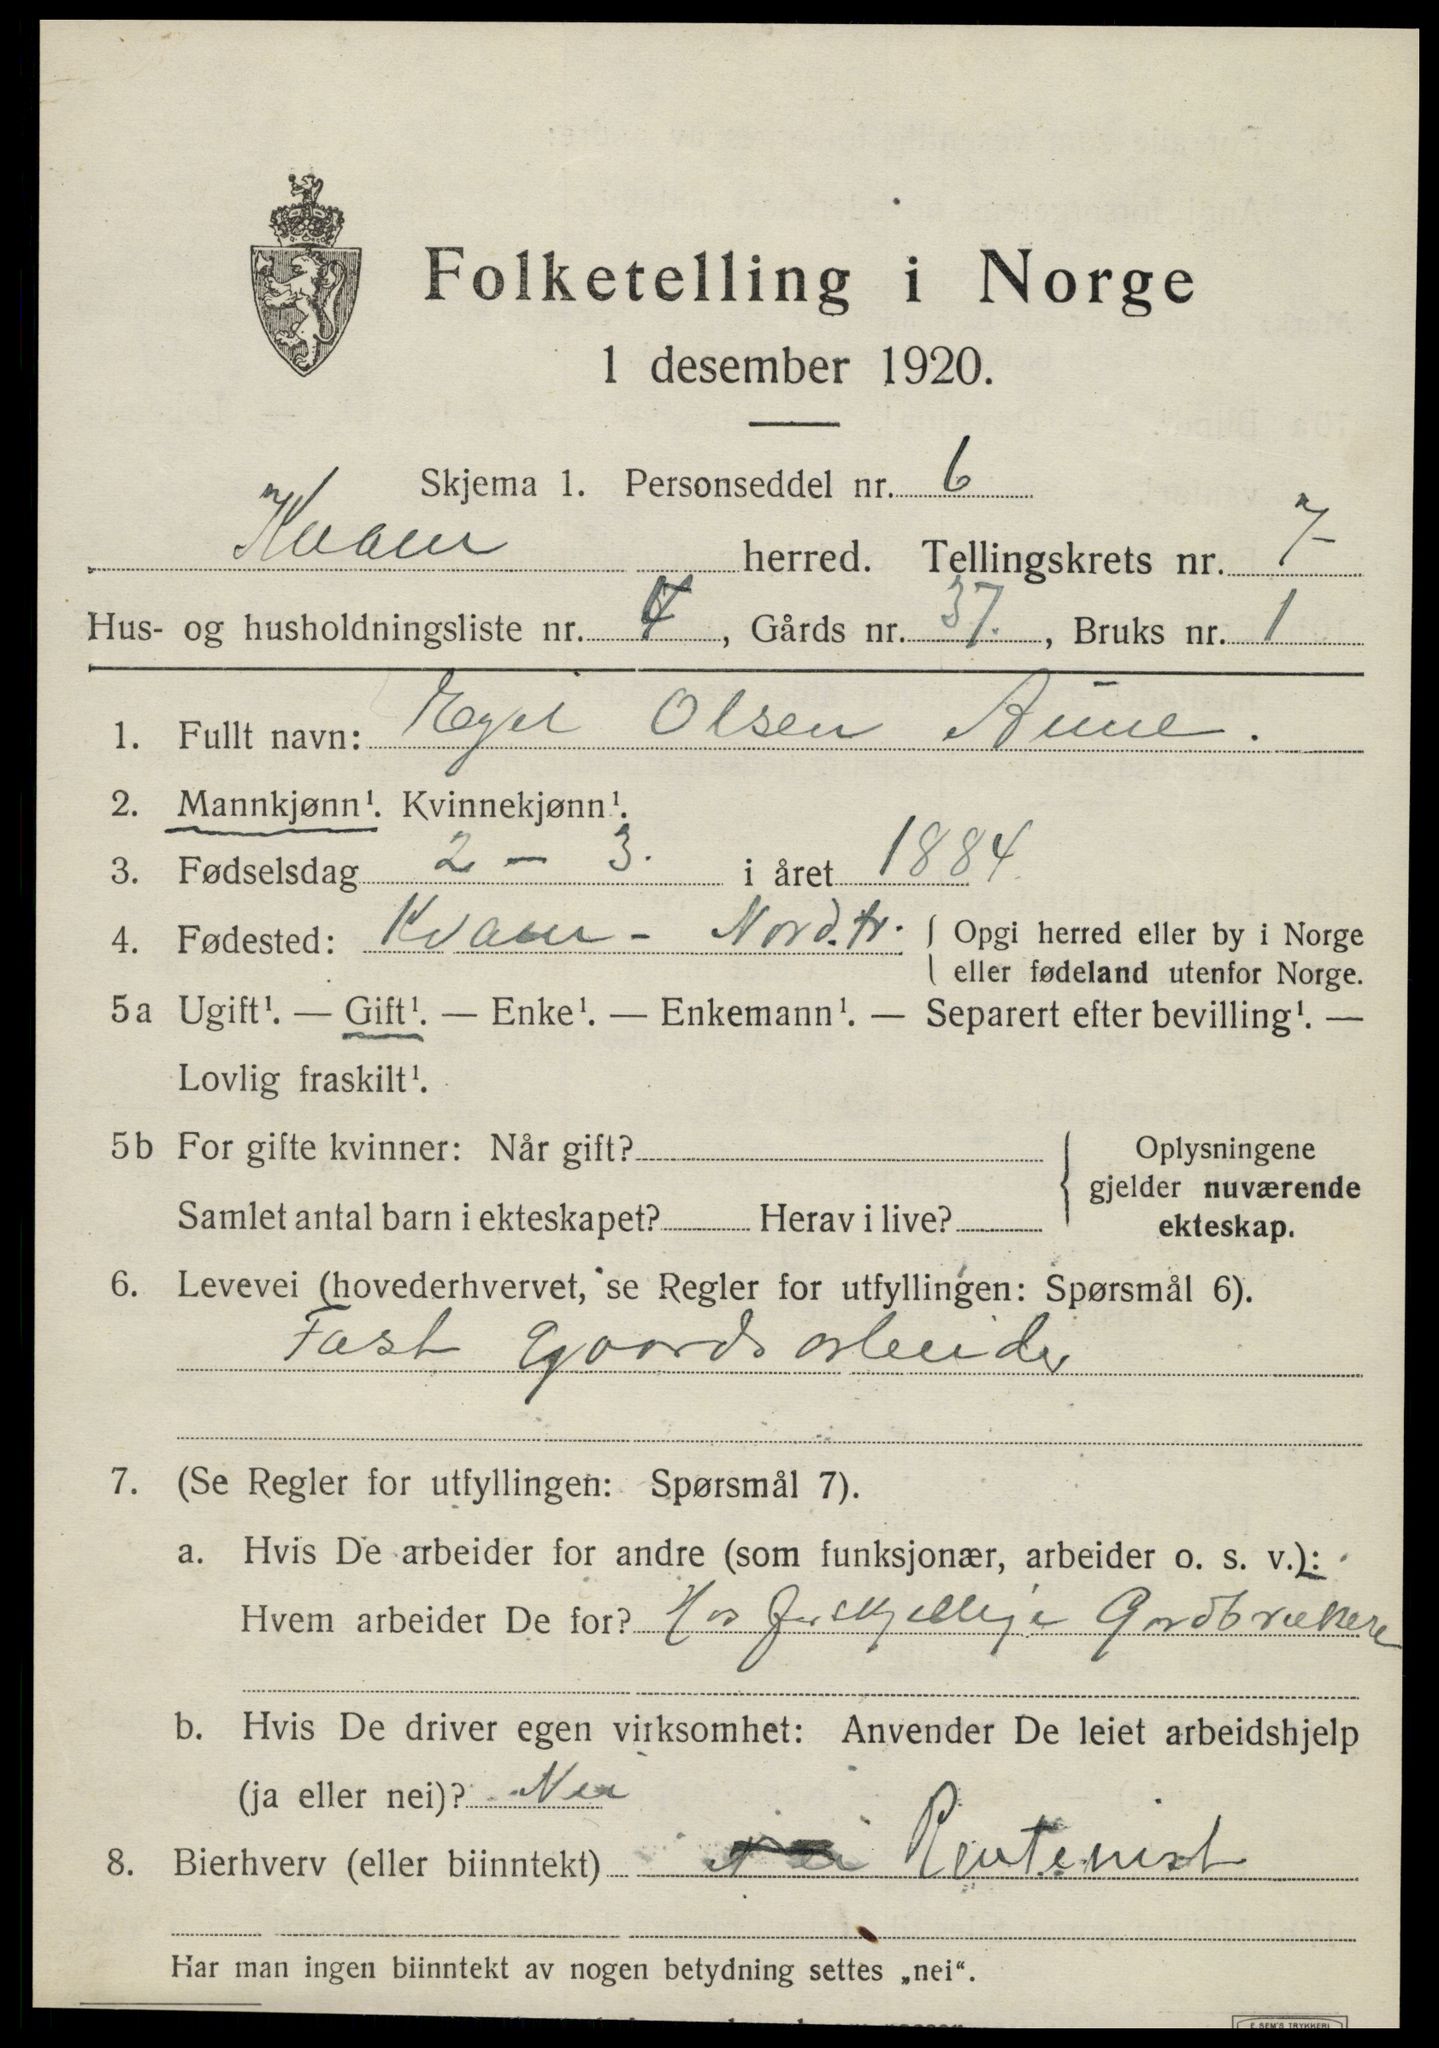 Folketelling i Norge
1 desember 1920.
Skjema 1. Personseddel nr. 6
Kvam herred. Tellingskrets nr. 7
Hus- og husholdningsliste nr. 4, Gårds nr. 37., Bruks nr. 1
1. Fullt navn: Egil Olsen Aune.
2. Mannkjønn¹. Kvinnekjønn¹.
3. Fødselsdag 2 - 3. i året 1884.
4. Fødested: Kvam - Nord.tr. { Opgi herred eller by i Norge
eller fødeland utenfor Norge.
5a Ugift¹. — Gift¹. — Enke¹. — Enkemann¹. — Separert efter bevilling¹. —
Lovlig fraskilt¹.
5b For gifte kvinner: Når gift? { Oplysningene
gjelder nuværende
Samlet antal barn i ekteskapet? Herav i live? ekteskap.
6. Levevei (hovederhvervet, se Regler for utfyllingen: Spørsmål 6).
Fast Gaardsarbeider
7. (Se Regler for utfyllingen: Spørsmål 7).
a. Hvis De arbeider for andre (som funksjonær, arbeider o. s. v.):
Hvem arbeider De for? Hos forskjellige Gardbrukere
b. Hvis De driver egen virksomhet: Anvender De leiet arbeidshjelp
(ja eller nei)? Nei
8. Bierhverv (eller biinntekt) Nei Rentenist
Har man ingen biinntekt av nogen betydning settes „nei“.
E. SEM'S TRYKKERI